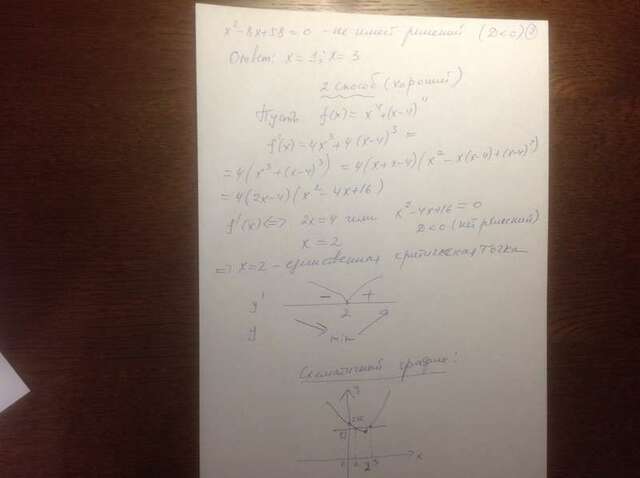 x² - 8x + 59 = 0 - не имеет решений (D < 0) ②
Ответ: x = 1; x = 3
2 способ (хороший)
Пусть f(x) = x⁴ + (x-4)⁴
f'(x) = 4x³ + 4(x-4)³ =
= 4(x³ + (x-4)³) = 4(x+x-4)(x² - x(x-4) + (x-4)²)
= 4(2x-4)(x² - 4x + 16)
f'(x) <=> 2x = 4 или x² - 4x + 16 = 0
x = 2 D < 0 (нет решений)
=> x = 2 - единственная критическая точка
- +
y' 2
y min
Схематичный график:
y
82
0 1 2 3 x